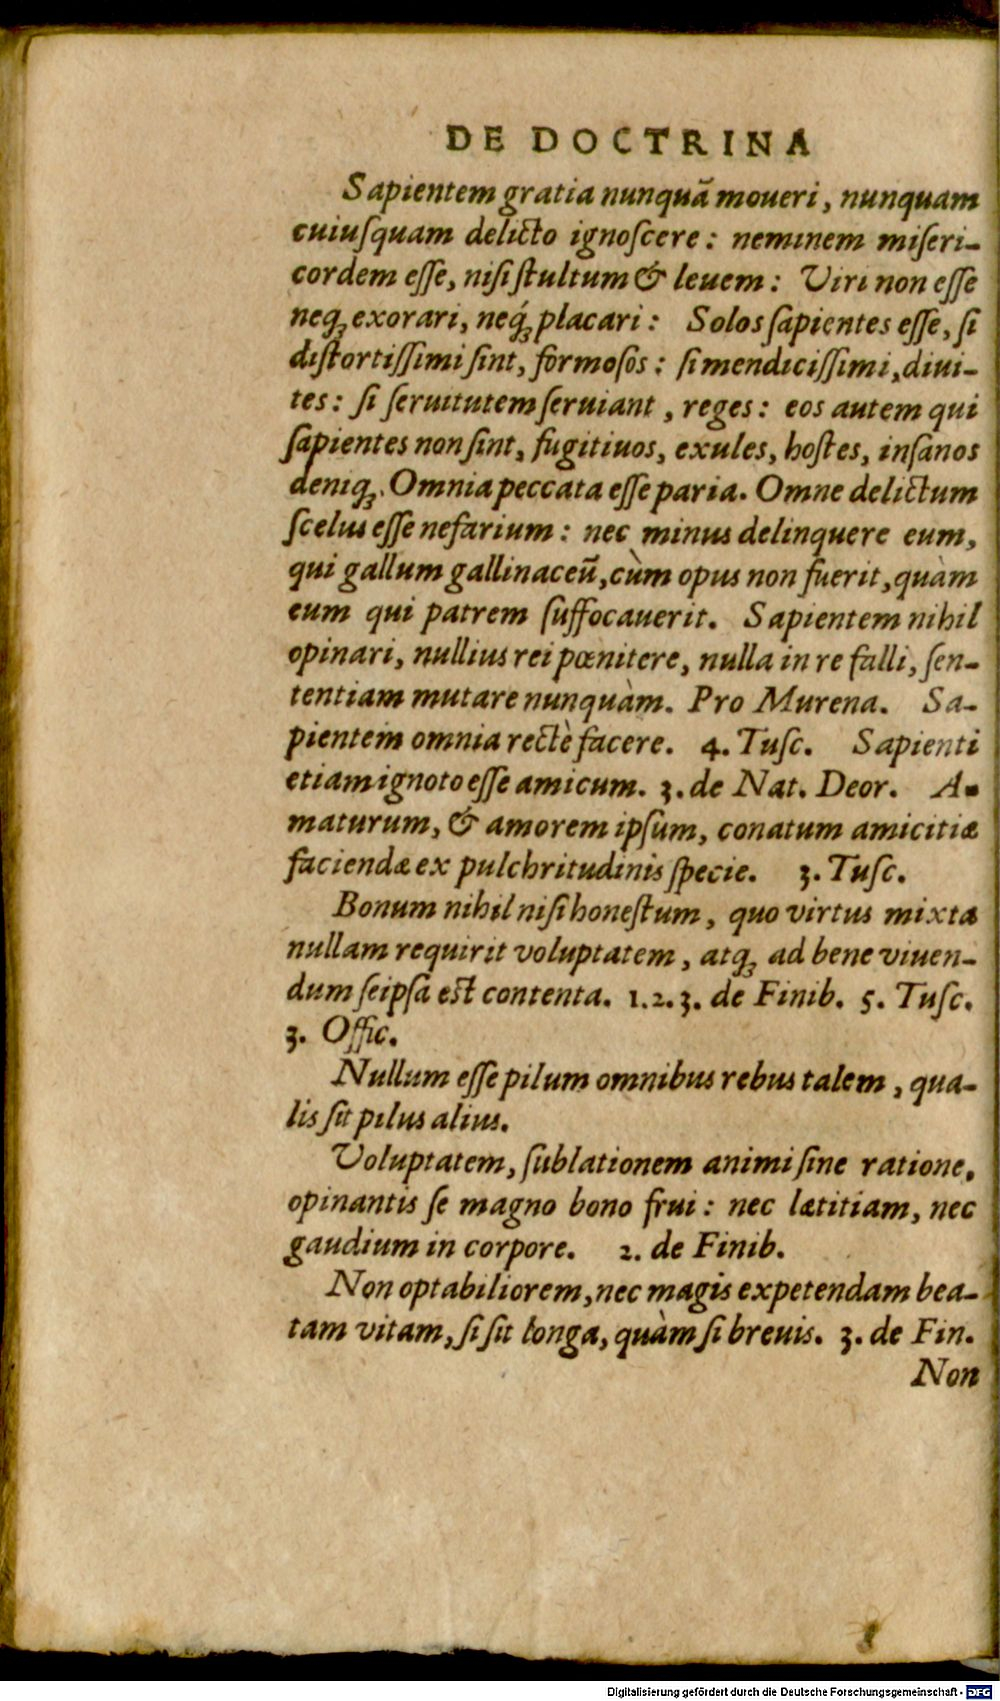 DE DOCTRINA
Sapientem gratia nunquã moueri, nunquam
cuiuſquam delicto ignoſcere: neminem miſeri-
cordem eſſe, niſi ſtultum & leuem: Viri non eſſe
neq; exorari, neq́; placari: Solos ſapientes eſſe, ſi
diſtortiſſimi ſint, formoſos: ſi mendiciſſimi, diui-
tes: ſi ſeruitutem ſeruiant, reges: eos autem qui
ſapientes non ſint, fugitiuos, exules, hoſtes, inſanos
deniq;. Omnia peccata eſſe paria. Omne delictum
ſcelus eſſe nefarium: nec minus delinquere eum,
qui gallum gallinaceũ, cùm opus non fuerit, quàm
eum qui patrem ſuffocauerit. Sapientem nihil
opinari, nullius rei pœnitere, nulla in re falli, ſen-
tentiam mutare nunquàm. Pro Murena. Sa-
pientem omnia rectè facere. 4. Tuſc. Sapienti
etiam ignoto eſſe amicum. 3. de Nat. Deor. A-
maturum, & amorem ipſum, conatum amicitiæ
faciendæ ex pulchritudinis ſpecie. 3. Tuſc.
Bonum nihil niſi honeſtum, quo virtus mixta
nullam requirit voluptatem, atq; ad bene viuen-
dum ſeipſa eſt contenta. 1.2.3. de Finib. 5. Tuſc.
3. Offic.
Nullum eſſe pilum omnibus rebus talem, qua-
lis ſit pilus alius.
Voluptatem, ſublationem animi ſine ratione,
opinantis ſe magno bono frui: nec lætitiam, nec
gaudium in corpore. 2. de Finib.
Non optabiliorem, nec magis expetendam bea-
tam vitam, ſi ſit longa, quàm ſi breuis. 3. de Fin.
Non
Digitalisierung gefördert durch die Deutsche Forschungsgemeinschaft - DFG